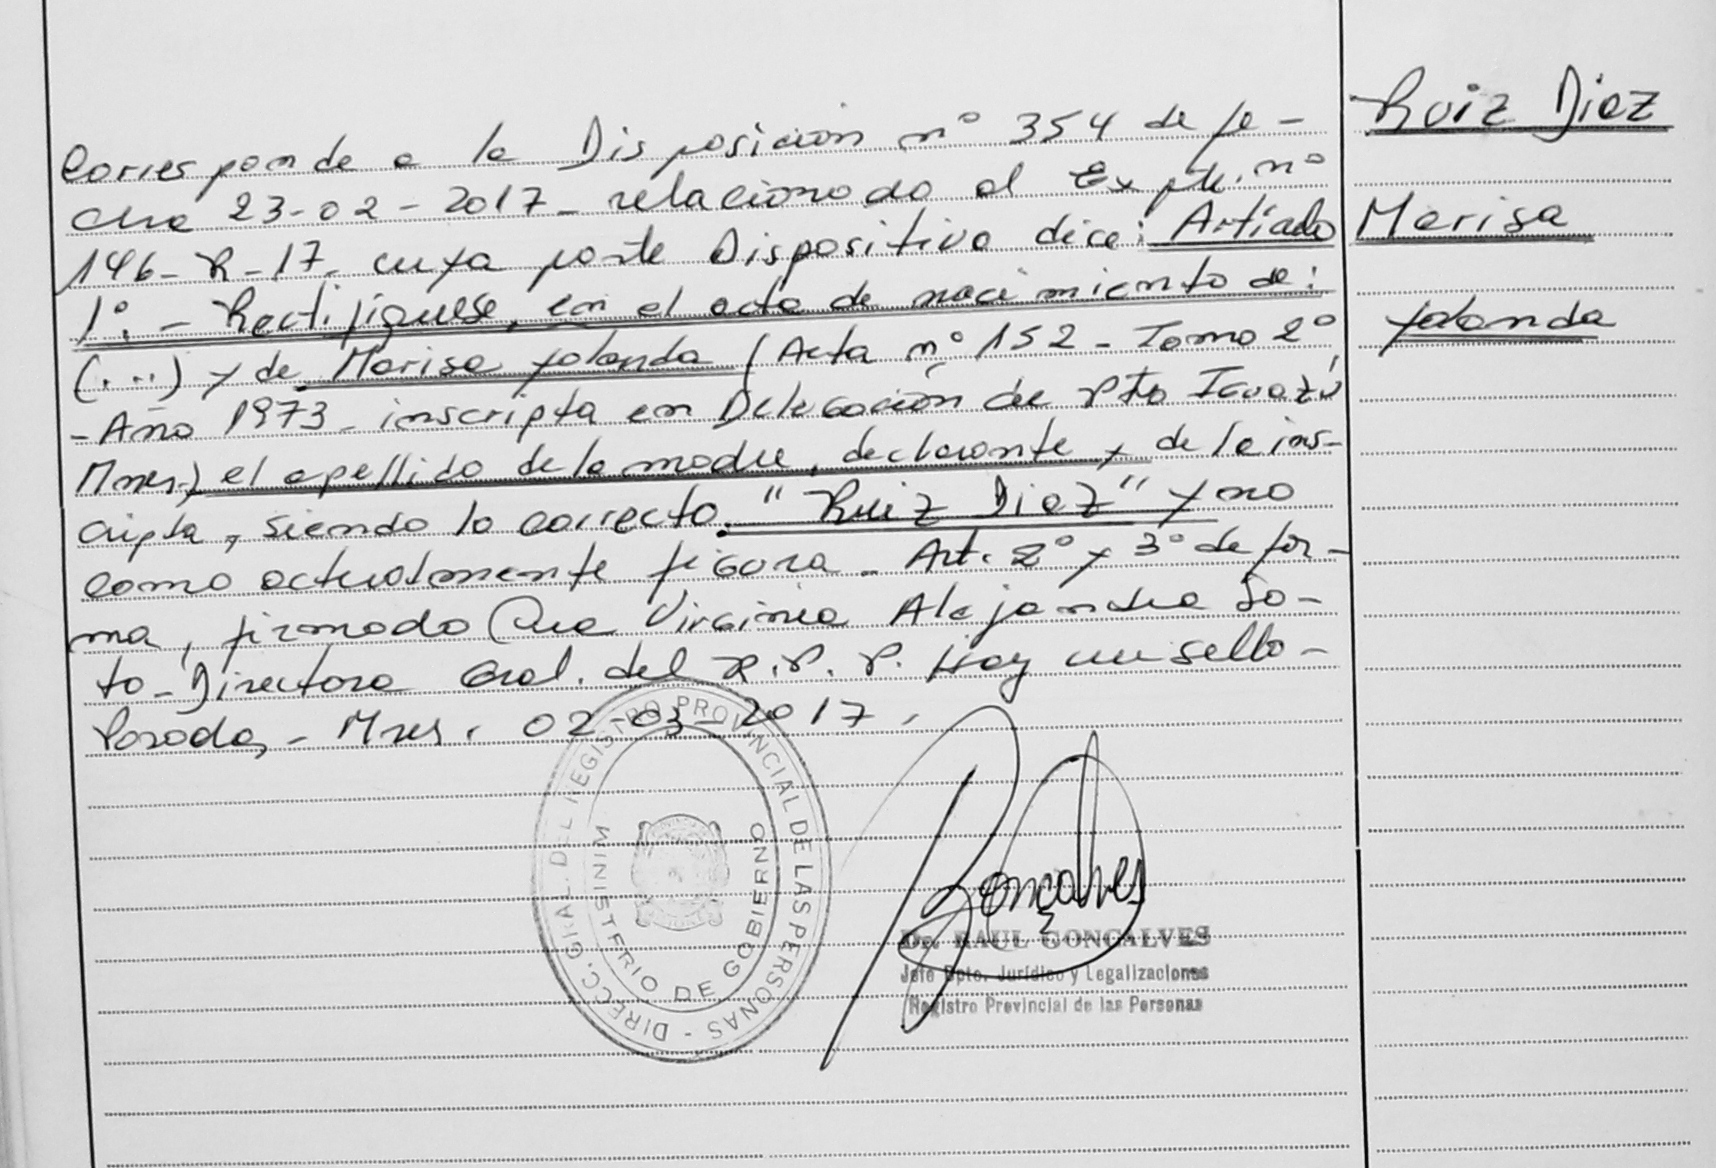 Corresponde a la Disposición nº 354 de fe-
cha 23-02-2017- relacionado al Expte. nº
146-R-17- cuya parte Dispositiva dice: Artículo
1º: - Rectifíquese, en el acta de nacimiento de:
(...) y de Marisa Yolanda (Acta nº 152 - Tomo 2º
- Año 1973 - inscripta en Delegación de Pto Iguazú
Mnes.) el apellido de la madre, declarante y de la ins-
cripta, siendo lo correcto. "Ruiz Diaz" y no
como actualmente figura - Art. 2º y 3º de for-
ma, firmado Cra Virginia Alejandra So-
to - Directora Gral. del R.P.P. Hay un sello -
Posadas, - Mnes. 02-03-2017.
Ruiz Diaz
Marisa
Yolanda
DIRECC. GRAL. DEL REGISTRO PROVINCIAL DE LAS PERSONAS -
MINISTERIO DE GOBIERNO
Gonçalves
Dr. RAUL GONCALVES
Jefe Dpto. Jurídico y Legalizaciones
Registro Provincial de las Personas